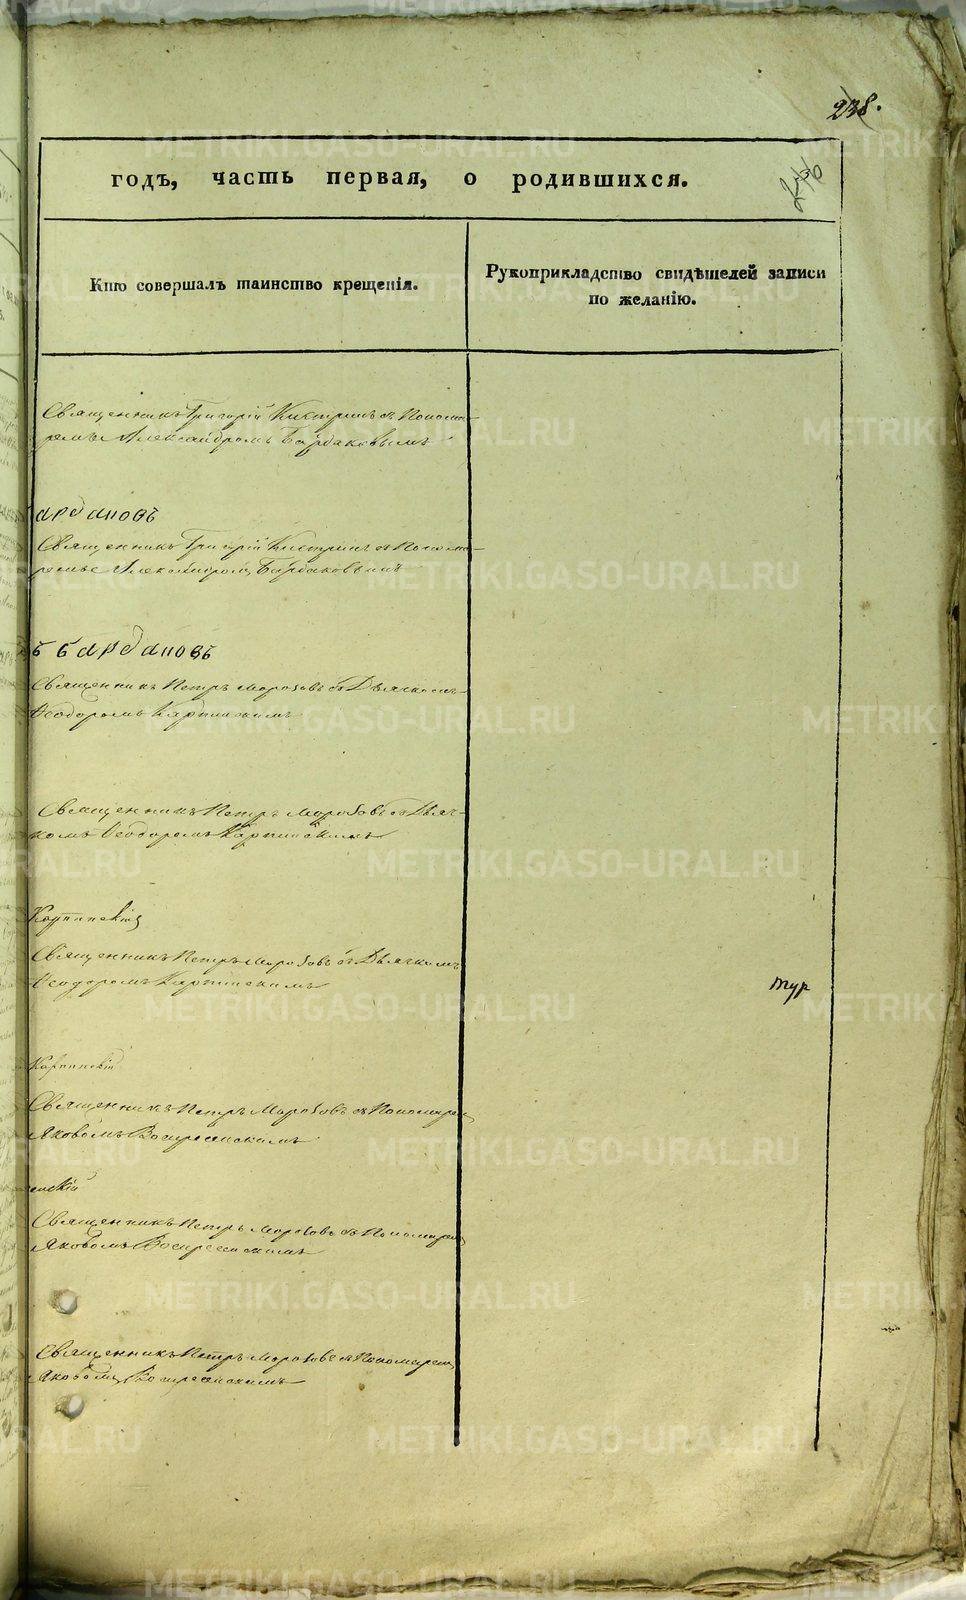 238.
246
годъ, часть первая, о родившихся.
Кто совершалъ таинство крещенія.
Рукоприкладство свидѣтелей записи
по желанію.
Священникъ Григорій съ Понома-
ремъ Александромъ Бардаковымъ
ардановъ
Священникъ Григорій съ Понома-
ремъ Александромъ Бардаковымъ
ъ бардановъ
Священникъ Петръ Морозовъ съ Дьячкомъ
Ѳеодоромъ Карпинскимъ
Священникъ Петръ Морозовъ съ Дьяч-
комъ Ѳеодоромъ Карпинскимъ
Карпинскій
Священникъ Петръ Морозовъ съ Дьячкомъ
Ѳеодоромъ Карпинскимъ
тур
Карпинскій
Священникъ Петръ Морозовъ съ Пономарем
Яковомъ Воскресенскимъ
енскій
Священникъ Петръ Морозовъ съ Пономарем
Яковомъ Воскресенскимъ
Священникъ Петръ Морозовъ съ Пономарем
Яковомъ Воскресенскимъ
METRIKI.GASO-URAL.RU